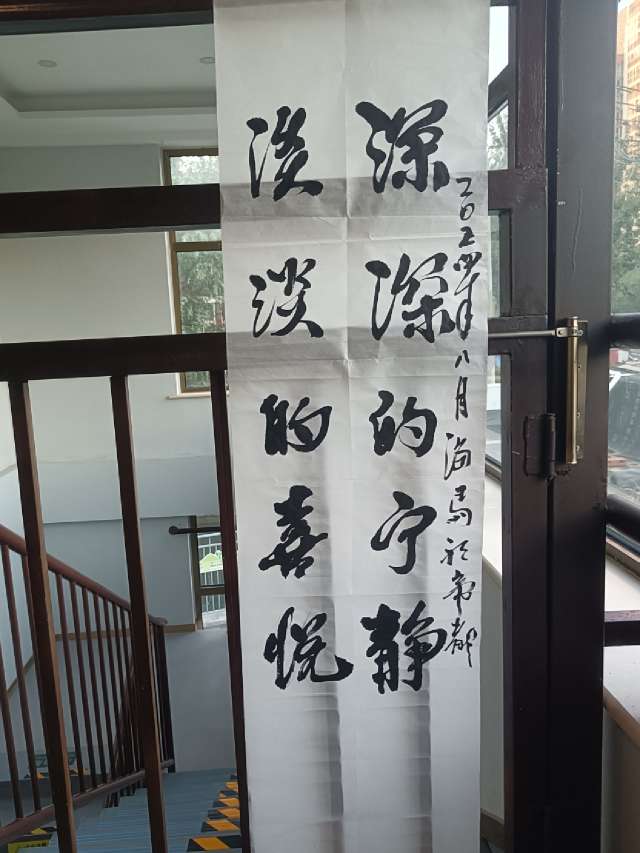 淡淡的喜悦
深深的宁静
二〇二四年八月海马于帝都